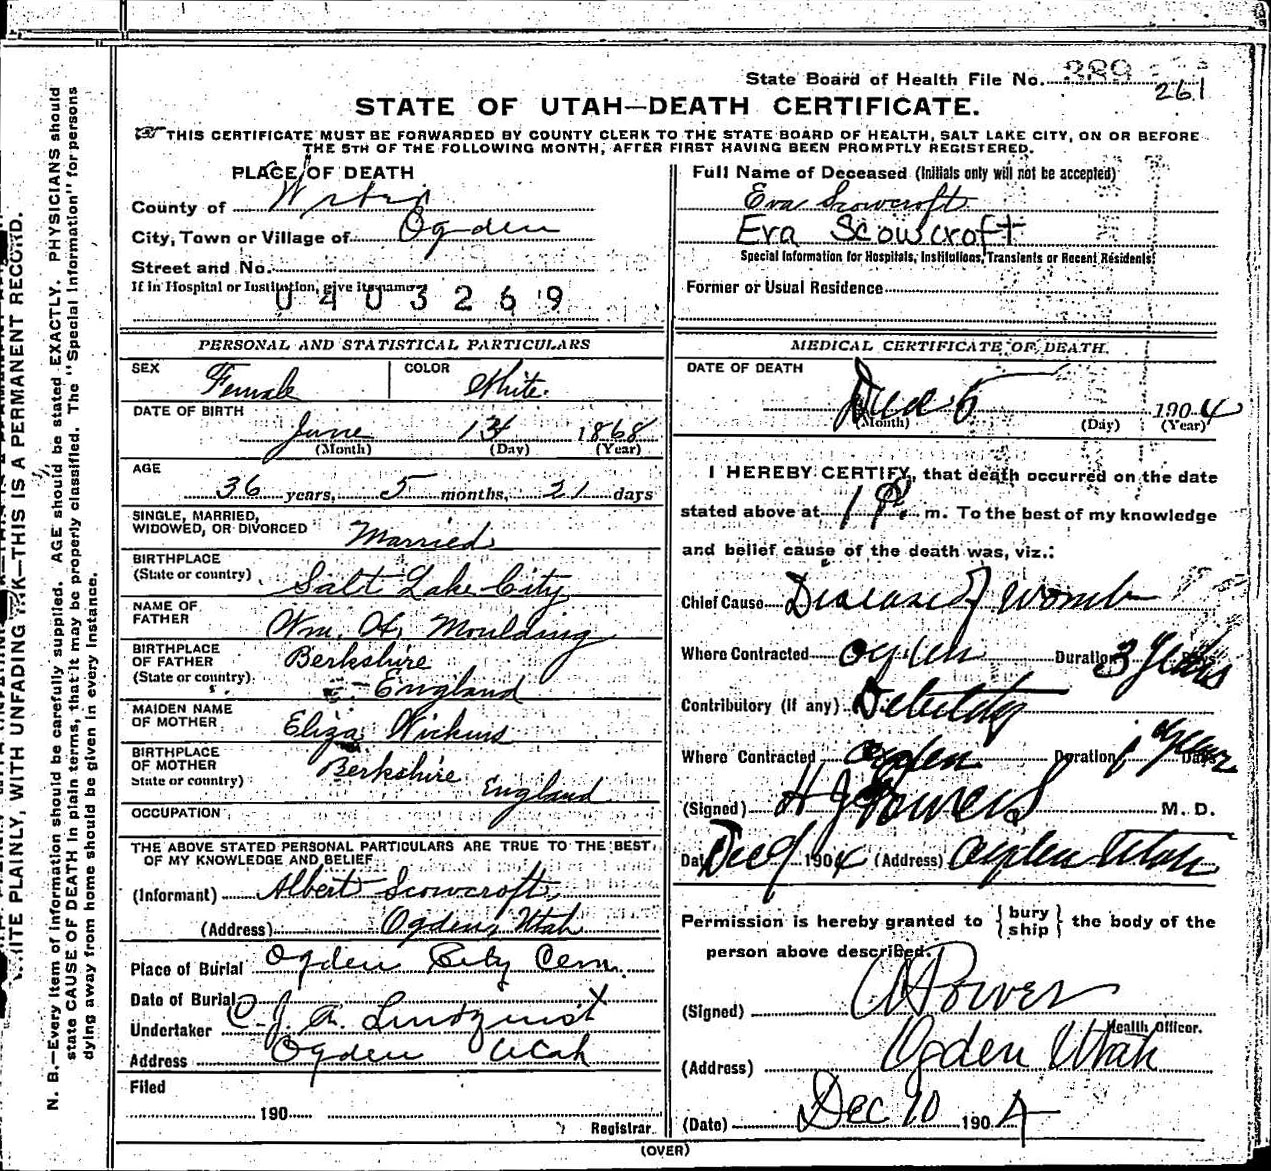 State Board of Health File No. 289
261
STATE OF UTAH—DEATH CERTIFICATE.
THIS CERTIFICATE MUST BE FORWARDED BY COUNTY CLERK TO THE STATE BOARD OF HEALTH, SALT LAKE CITY, ON OR BEFORE
THE 5TH OF THE FOLLOWING MONTH, AFTER FIRST HAVING BEEN PROMPTLY REGISTERED.
PLACE OF DEATH
County of Weber
City, Town or Village of Ogden
Street and No.
If in Hospital or Institution, give its name
0403269
Full Name of Deceased (Initials only will not be accepted)
Eva Scowcroft
Eva Scowcroft
Special Information for Hospitals, Institutions, Transients or Recent Residents
Former or Usual Residence
PERSONAL AND STATISTICAL PARTICULARS
SEX Female COLOR White.
DATE OF BIRTH
June 13 1868
(Month) (Day) (Year)
AGE
36 years, 5 months, 21 days
SINGLE, MARRIED,
WIDOWED, OR DIVORCED Married
BIRTHPLACE
(State or country) Salt Lake City
NAME OF
FATHER Wm. H. Moulding
BIRTHPLACE
OF FATHER Berkshire
(State or country) England
MAIDEN NAME
OF MOTHER Eliza
BIRTHPLACE
OF MOTHER Berkshire
State or country) England
OCCUPATION
THE ABOVE STATED PERSONAL PARTICULARS ARE TRUE TO THE BEST
OF MY KNOWLEDGE AND BELIEF
(Informant) Albert Scowcroft
(Address) Ogden, Utah
Place of Burial Ogden City Cem.
Date of Burial
Undertaker C. J. A. Lindquist
Address Ogden Utah
Filed
190
Registrar.
MEDICAL CERTIFICATE OF DEATH.
DATE OF DEATH
Dec 5 1904
(Month) (Day) (Year)
I HEREBY CERTIFY, that death occurred on the date
stated above at 1 P. m. To the best of my knowledge
and belief cause of the death was, viz.:
Chief Cause Disease of womb
Where Contracted Ogden Duration 3 years Days
Contributory (if any)
Where Contracted Ogden Duration 1 year Days
(Signed) H J Powers M. D.
Date Dec 9 1904 (Address) Ogden Utah
Permission is hereby granted to {bury
ship} the body of the
person above described.
(Signed) Power
Health Officer.
(Address) Ogden Utah
(Date) Dec 10 1904
(OVER)
WRITE PLAINLY, WITH UNFADING INK—THIS IS A PERMANENT RECORD.
N. B.—Every item of information should be carefully supplied. AGE should be stated EXACTLY. PHYSICIANS should
state CAUSE OF DEATH in plain terms, that it may be properly classified. The "Special Information" for persons
dying away from home should be given in every instance.